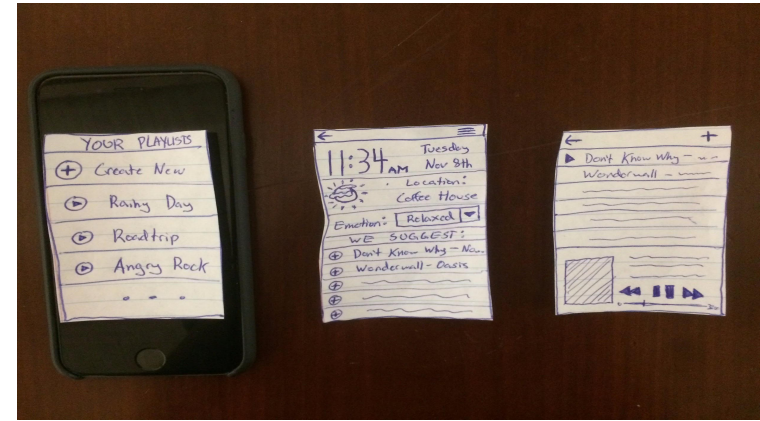 YOUR PLAYLISTS
Create New
Rainy Day
Roadtrip
Angry Rock
11:34 AM
Tuesday
Nov 8th
Location:
Coffee House
Emotion: Relaxed
WE SUGGEST:
Don't Know Why - No...
Wonderwall - Oasis
Don't Know Why -
Wonderwall -